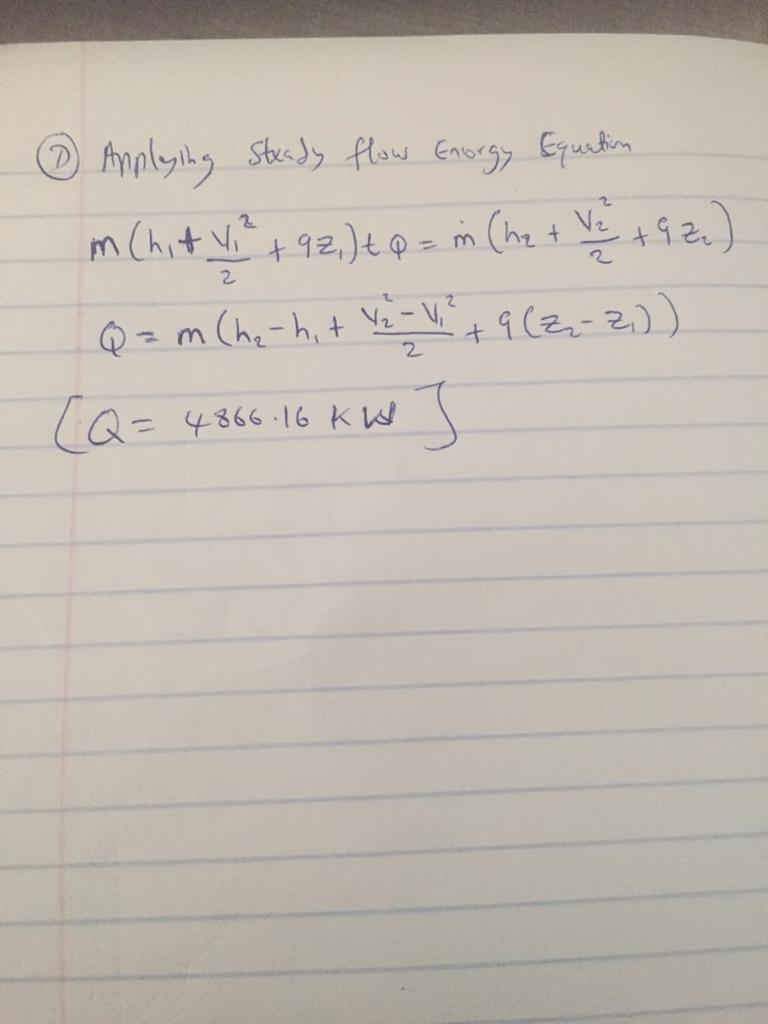 ① Applying Steady flow Energy Equation
m(h₁ + V₁²/2 + gz₁) + Q = ṁ(h₂ + V₂²/2 + gz₂)
Q = m(h₂ - h₁ + V₂² - V₁²/2 + g(z₂ - z₁))
[Q = 4866.16 KW]